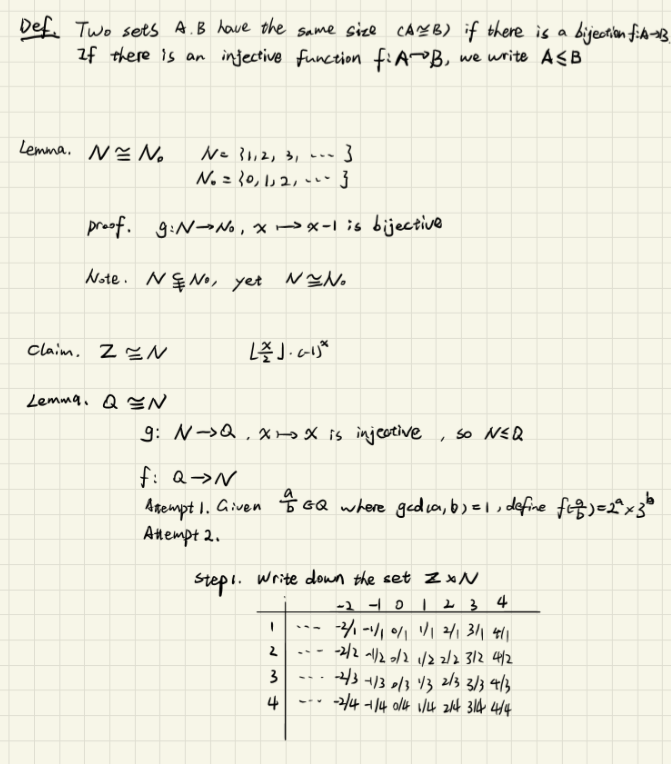 Def. Two sets A.B have the same size (A≅B) if there is a bijection f:A→B.
If there is an injective function f:A→B, we write A≤B
Lemma. N ≅ N₀ N = {1,2,3, ...}
N₀ = {0,1,2, ...}
proof. g:N→N₀, x ↦ x-1 is bijective
Note. N ⊊ N₀, yet N≅N₀
Claim. Z ≅ N ⌊x/2⌋·(-1)ˣ
Lemma. Q ≅N
g: N→Q, x ↦ x is injective, so N≤Q
f: Q→N
Attempt 1. Given a/b ∈Q where gcd(a,b)=1, define f(a/b)=2ᵃ×3ᵇ
Attempt 2.
Step1. Write down the set Z×N
-2 -1 0 1 2 3 4
1 ... -2/1 -1/1 0/1 1/1 2/1 3/1 4/1
2 ... -2/2 -1/2 0/2 1/2 2/2 3/2 4/2
3 ... -2/3 -1/3 0/3 1/3 2/3 3/3 4/3
4 ... -2/4 -1/4 0/4 1/4 2/4 3/4 4/4